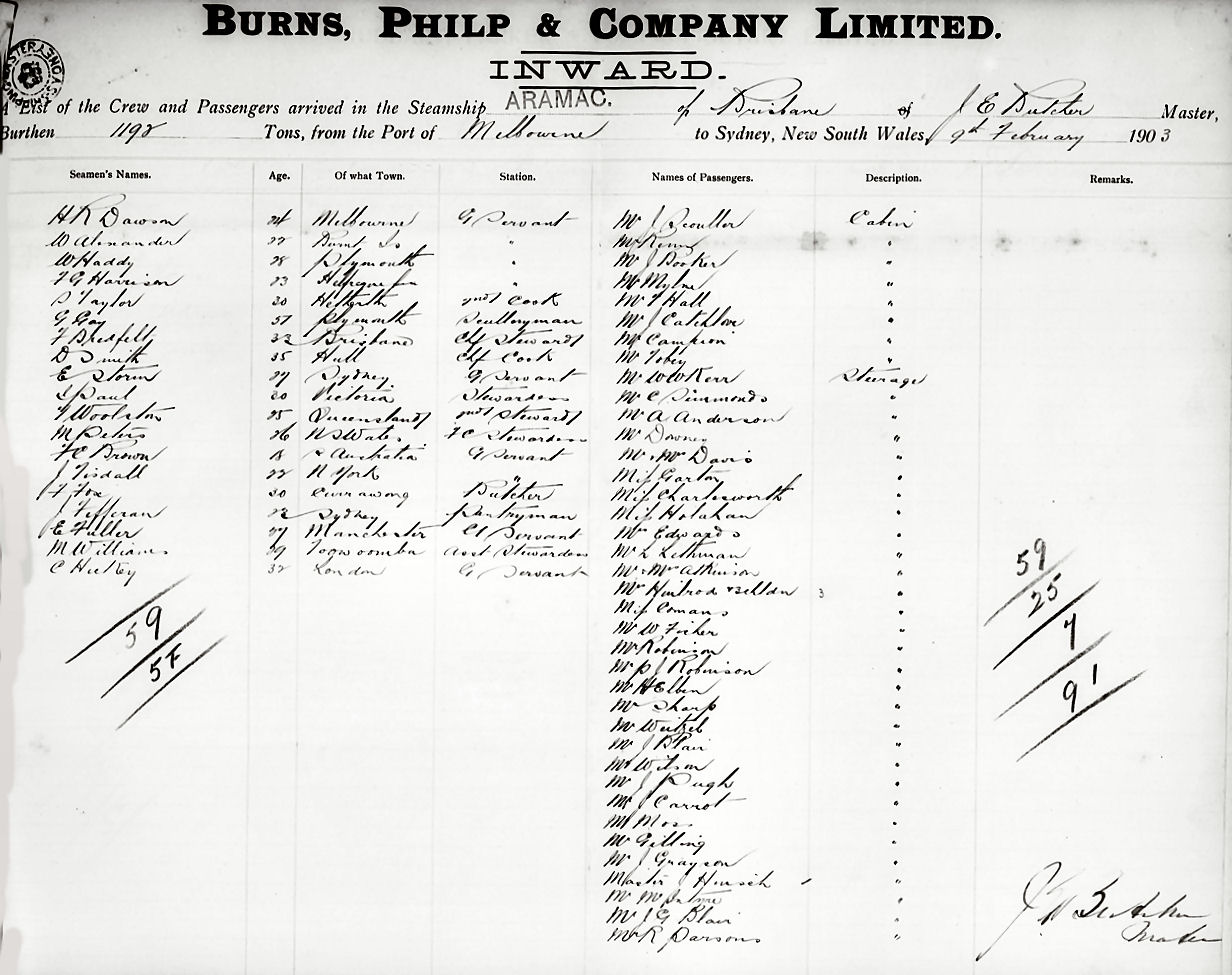 BURNS, PHILP & COMPANY LIMITED.
INWARD.
A List of the Crew and Passengers arrived in the Steamship ARAMAC. of Brisbane of J E Butcher Master,
Burthen 1192 Tons, from the Port of Melbourne to Sydney, New South Wales, 9th February 1903
Seamen's Names. Age. Of what Town. Station. Names of Passengers. Description. Remarks.
H R Dawson 24 Melbourne G Servant Mr J Scouller Cabin
W Alexander 22 Burnt Is " Mr Kenny "
W Haddy 28 Plymouth " Mr J Booker "
F G Harrison 23 " Mr Mylne "
S Taylor 20 2nd Cook Mr F Hall "
G Gay 57 Plymouth Sculleryman Mr J Catchlove "
F Bredfelt 32 Brisbane Chf Steward Mr Campion "
D Smith 35 Hull Chf Cook Mr Tobey "
E Storm 27 Sydney G Servant Mr W W Kerr Steerage
L Paul 20 Victoria Stewardess Mr C Simmonds "
F Woolston 25 Queensland 2nd Steward Mr A Anderson "
M Peters 26 N S Wales F C Stewardess Mr Downes "
F C Brown 18 S Australia G Servant Mr & Mrs Davis "
J Tisdall 22 N York " Miss Garton "
F Fox 30 Currawong Butcher Miss Charlesworth "
J Tefferan 22 Sydney Pantryman Miss Holahan "
E Fuller 27 Manchester G Servant Mr Edwards "
M Williams 39 Toowoomba Asst Stewardess Mr L Lethman "
C Hickey 32 London G Servant Mr & Mrs Atkinson "
Mrs & 3 childn 3 "
Miss Comans "
Mr W Fisher "
Mr Robinson "
Mr P J Robinson "
Mr H Elben "
Mr Sharp "
Mr Weitzel "
Mr J Blair "
Mr Wilson "
Mr J Pugh "
Mr J Carrot "
Mr Moss "
Mr Gilling "
Mr J Grayson "
Master J Hirsch "
Mr McIntyre "
Mr J G Blair "
Mr R Parsons "
59
57
59
25
7
91
J E Butcher
Master